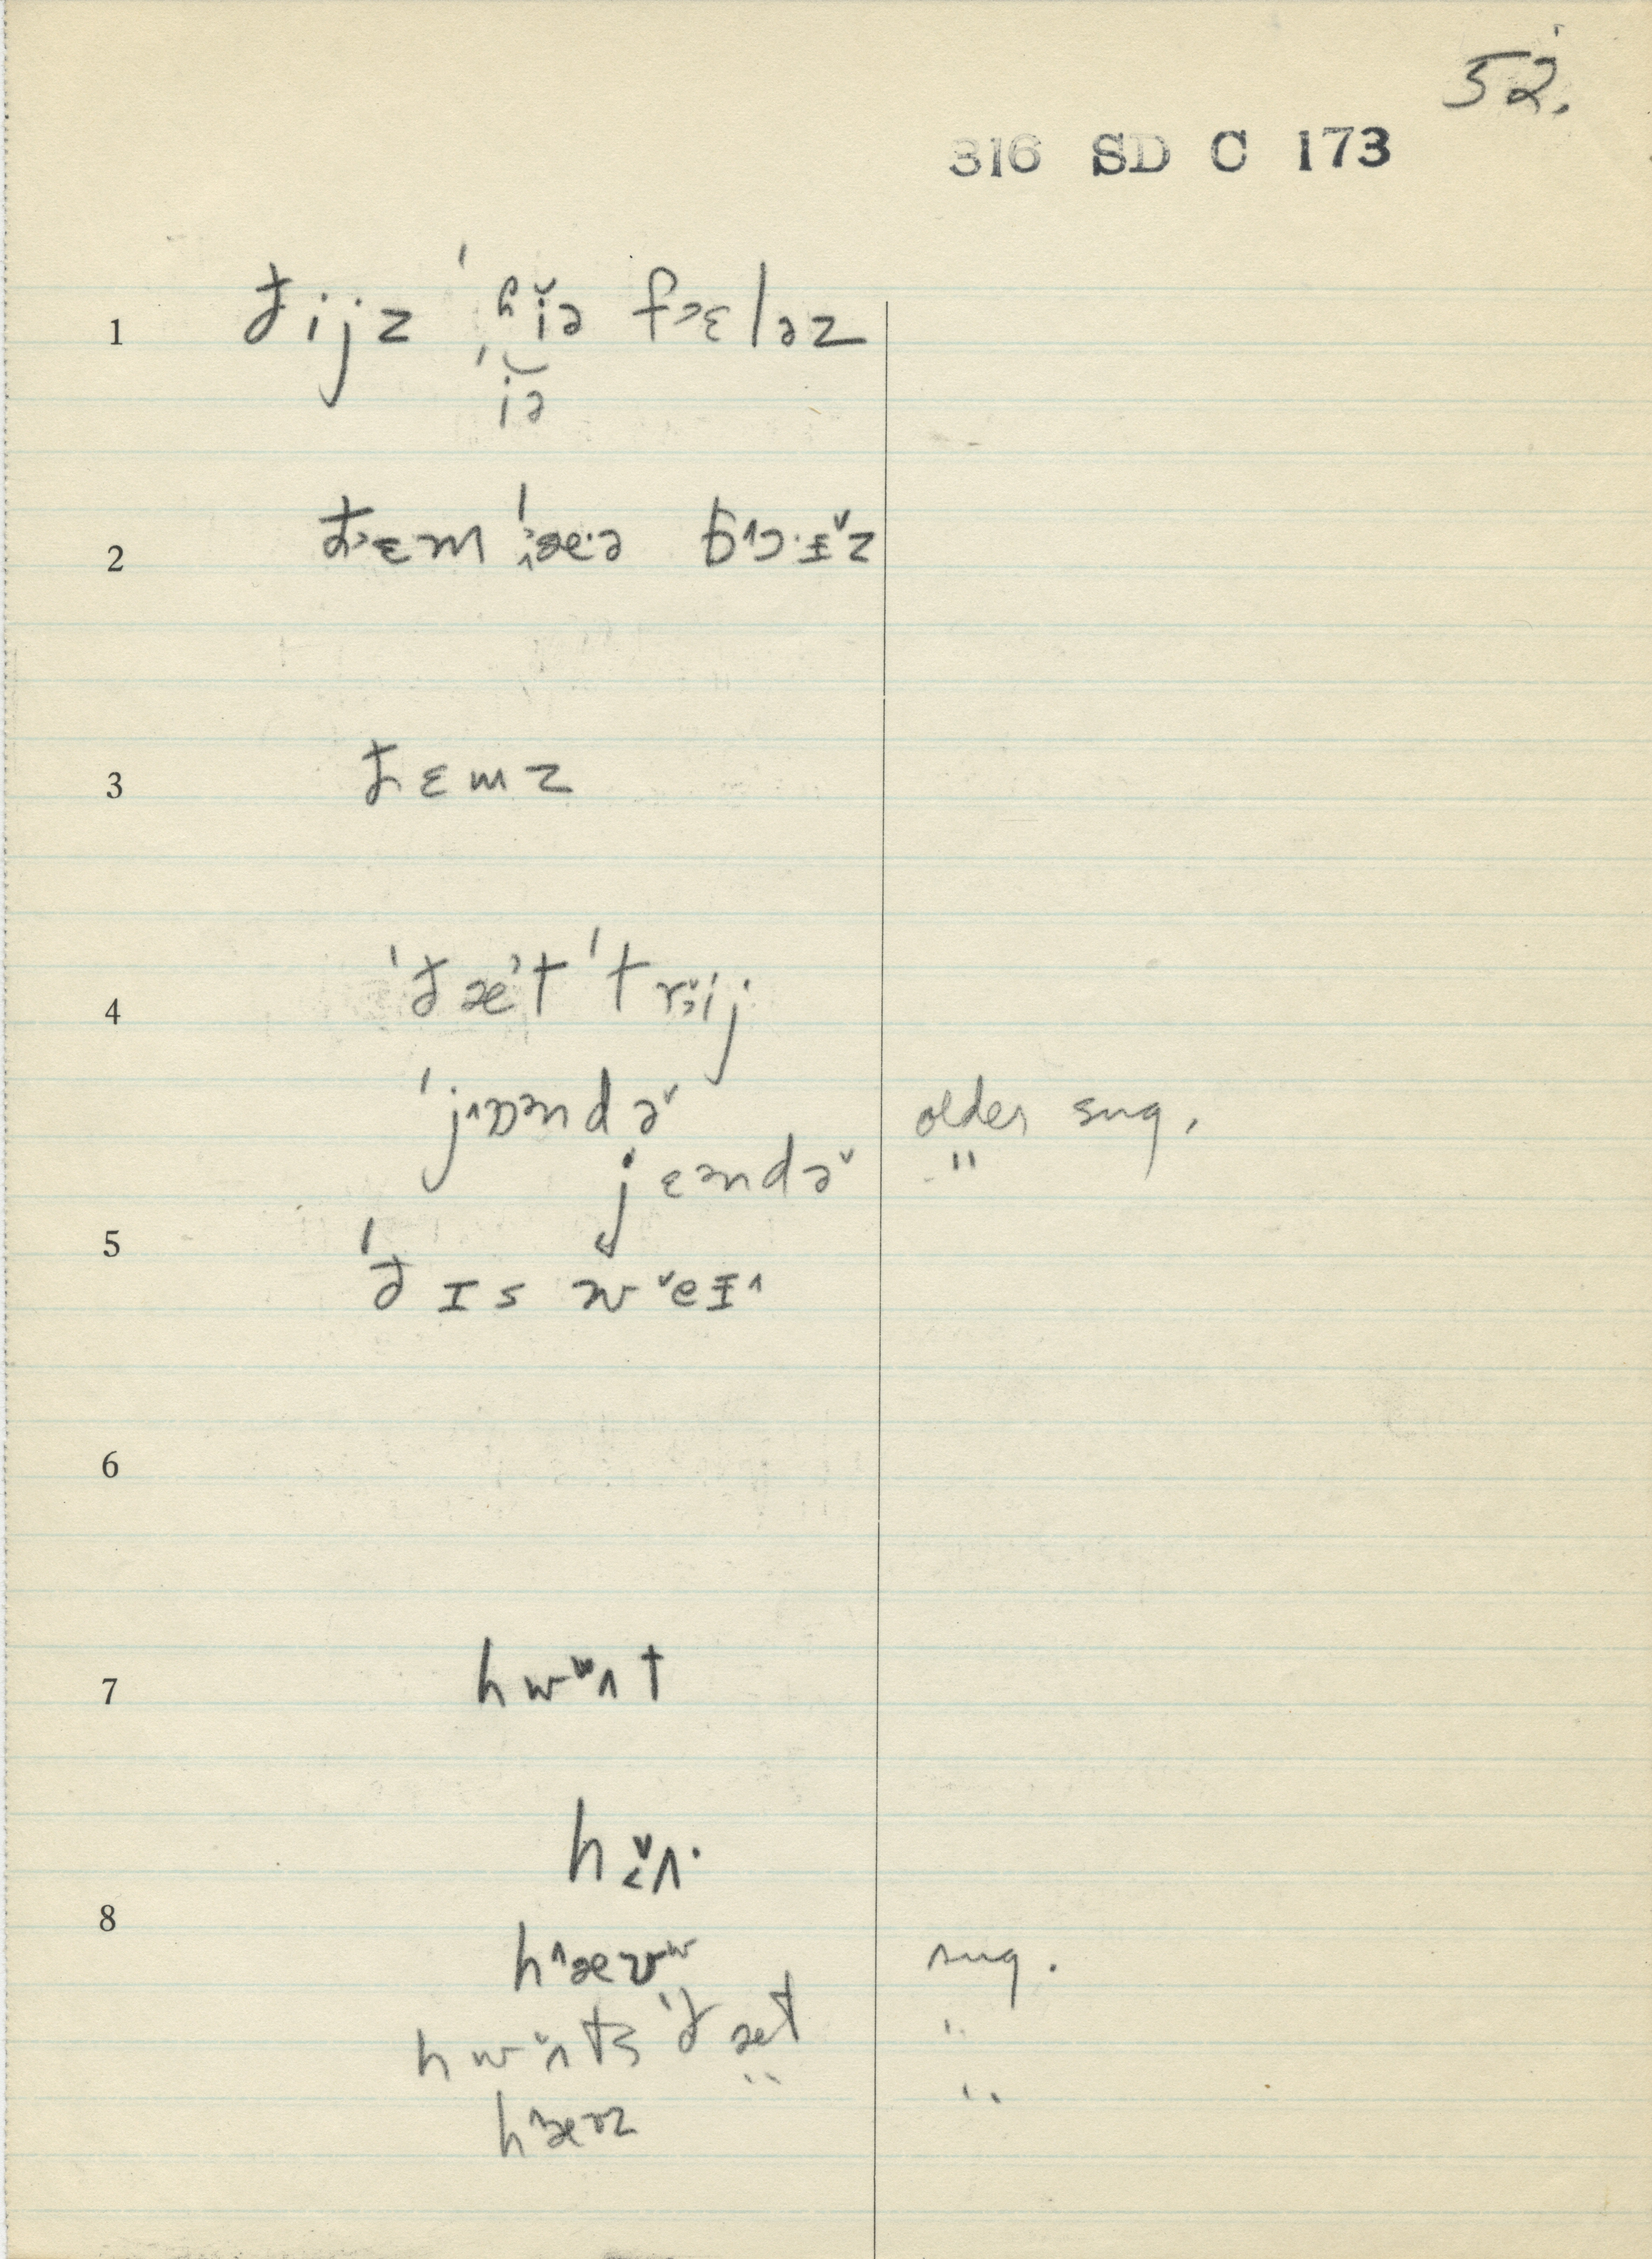 52.
316 SD C 173
1 ðijz ˈʰi̬ə f˃ɛləz
ˈi̯ə
2 ð˃ɛm ˈæ·ə bʌɔ·ɪˇz
3 ðɛmz
4 ˈðæ˒t ˈtrij
ˈj^ɒəndəˇ older sug.
jɛəndəˇ "
5 ˈðɪs wˇeɪ^
6
7 hwʌ̌t
hʌ̌·
8 h^æʊʷ sug.
hwʌ̌ts ˈðæt "
h^æʊz "